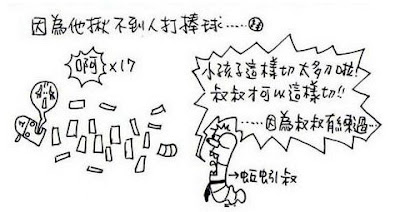 因為他揪不到人打棒球……
啊 ×17
小孩子這樣切太多刀啦!
叔叔才可以這樣切!!
……因為叔叔有練過…
→蚯蚓叔